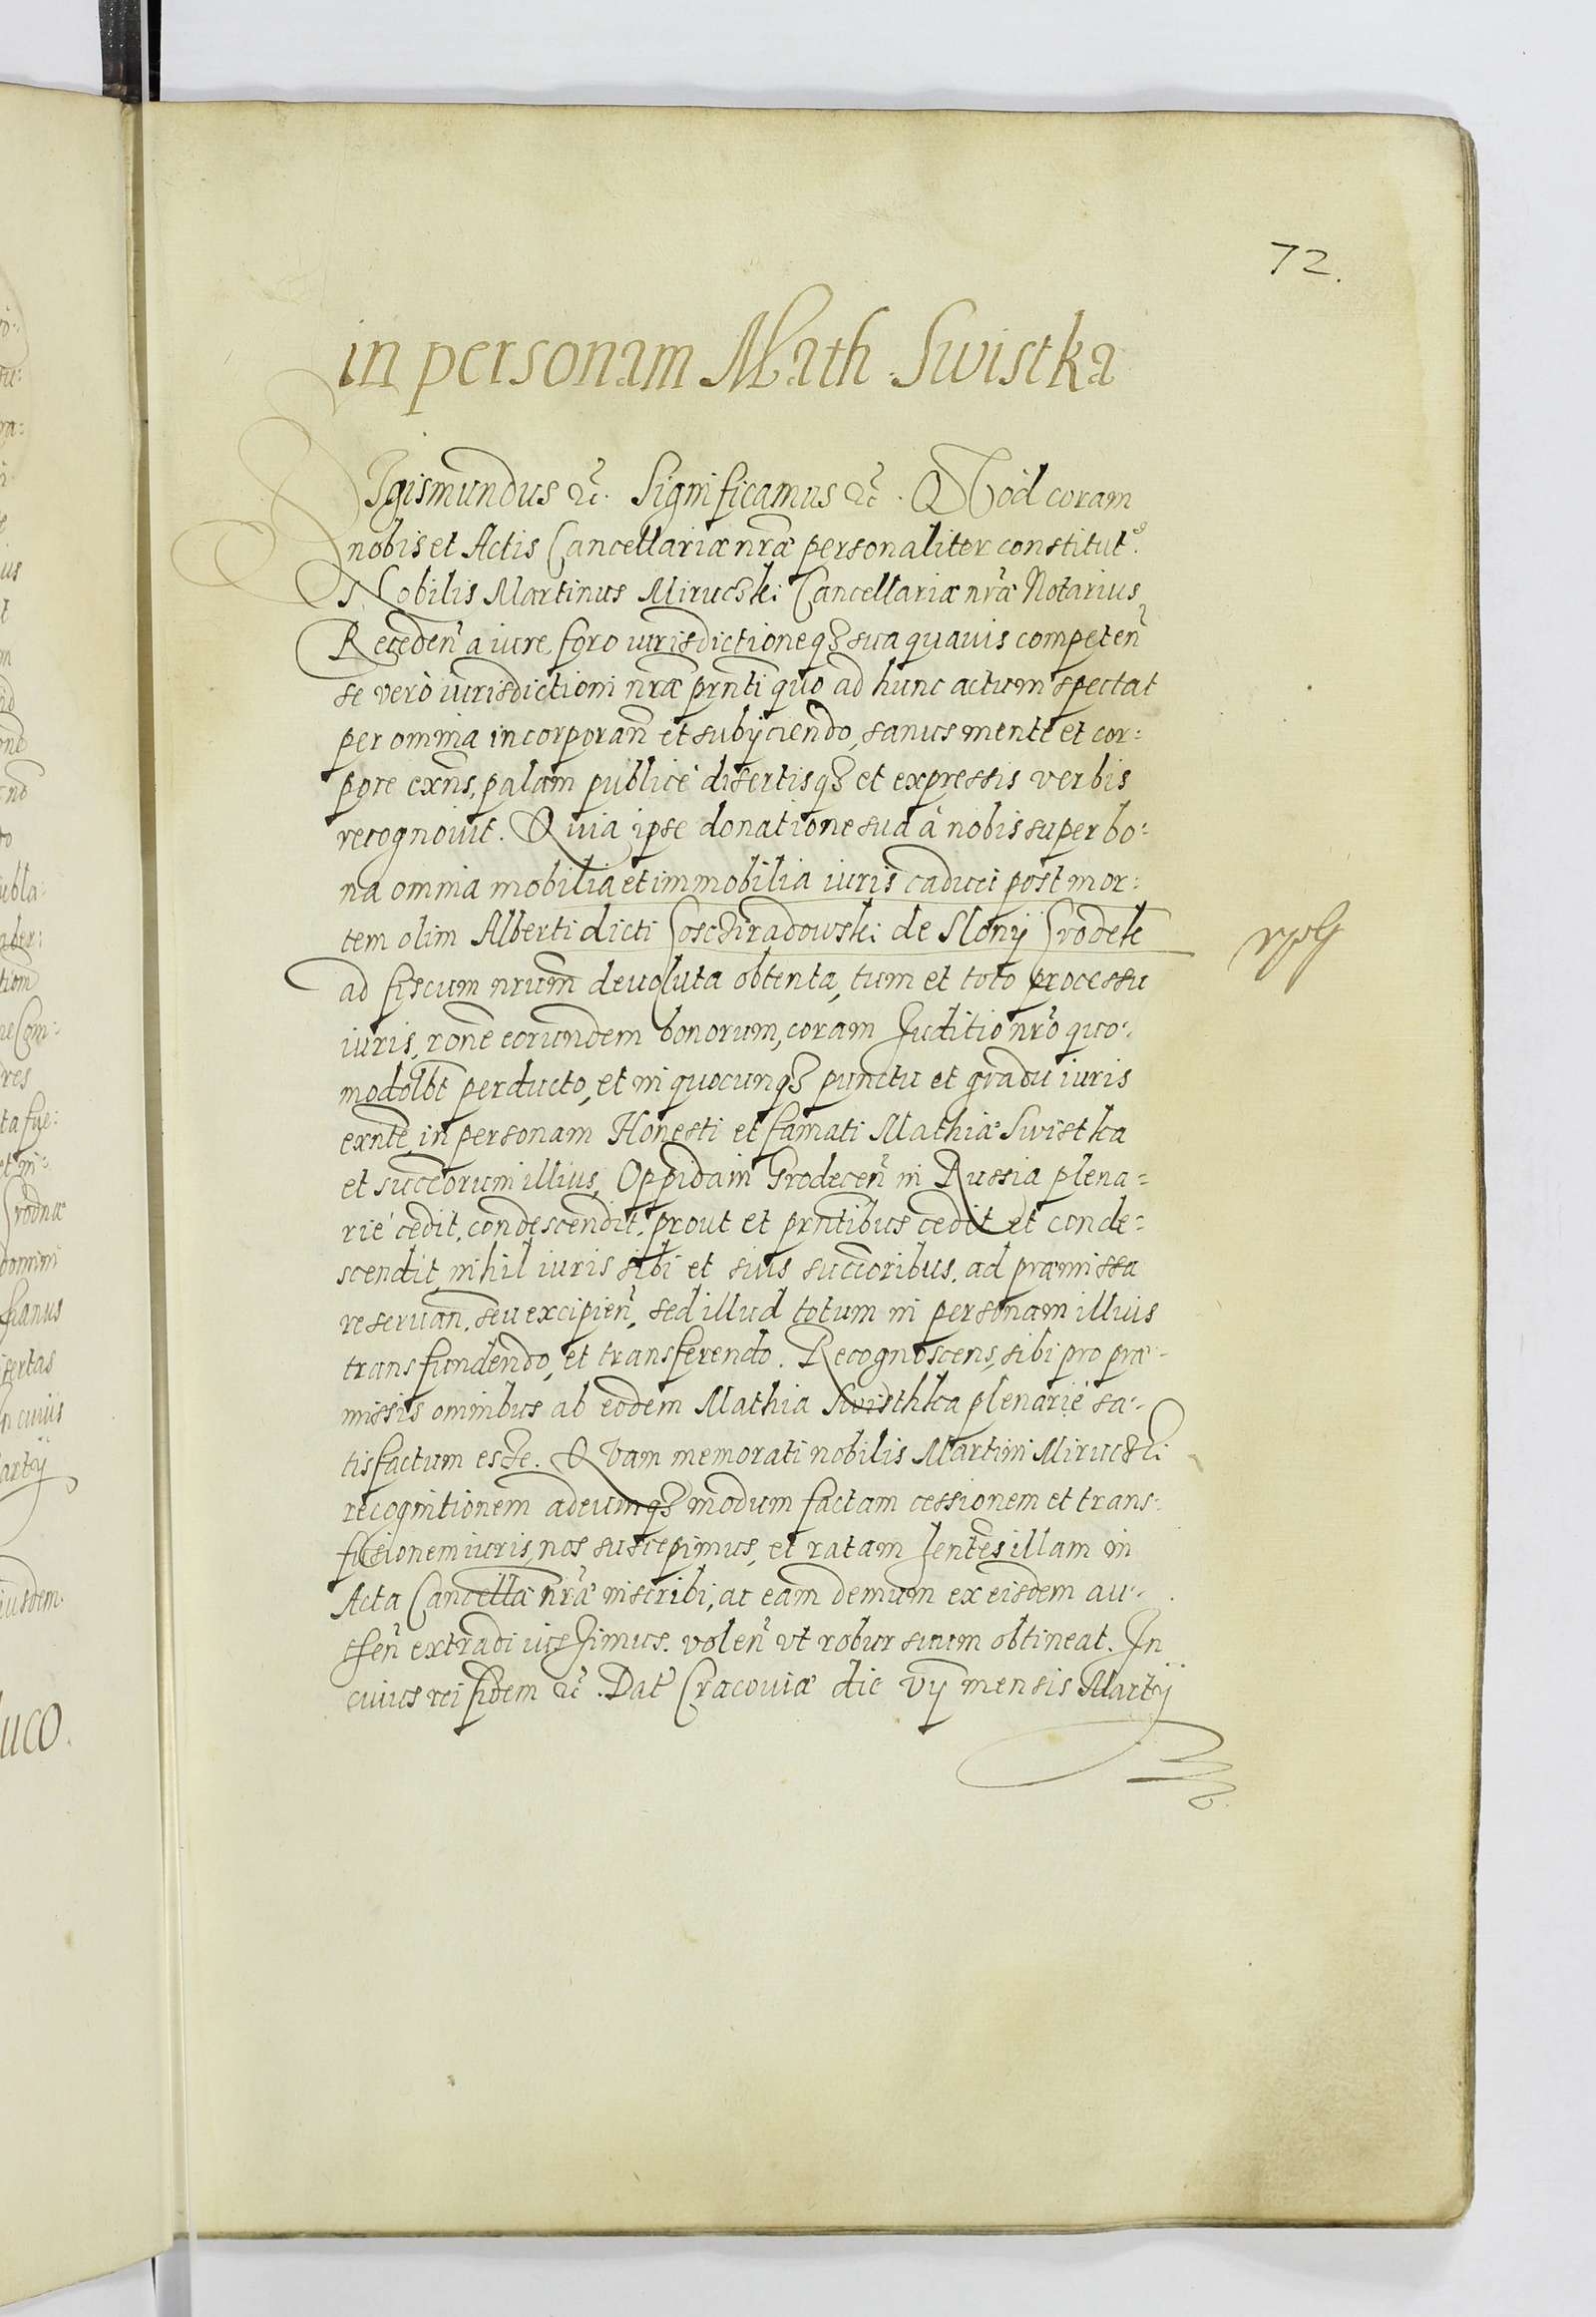 72.
in personam Math. Swistka
Sigismundus &c. Significamus &c. Quod coram
nobis et Actis Cancellariæ nræ personaliter constitut9.
Nobilis Martinus Mirucski Cancellariæ nræ Notarius
Receden̄ a iure foro iurisdictioneq3 sua quauis competen̄
se verò iurisdictioni nræ prn̄ti quo ad hunc actum spectat
per omnia incorporan̄ et subijciendo, sanus mente et cor:
pore exn̄s, palam publicè disertisq3 et expressis verbis
recognouit. Quia ipse donatione sua à nobis super bo:
na omnia mobilia et immobilia iuris caduci post mor:
tem olim Alberti dicti de Slonÿ Grodek
ad fiscum nrum deuoluta obtenta, tum et toto processu
iuris, rōne eorundem bonorum, coram Juditio nrō quo:
modolbt perducto, et in quocunq3 punctu et gradu iuris
exn̄te, in personam Honesti et famati Mathiæ Swistka
et succorum illius, Oppidani Grodecen̄ in Russia plena=
riè cedit, condescendit, prout et prn̄tibus cedit et conde:
scendit, nihil iuris sibi et suis succoribus, ad præmissa
reseruan̄, seu excipien̄, sed illud totum in personam illius
transfundendo, et transferendo. Recognoscens, sibi pro præ:
missis omnibus ab eodem Mathia Swisthka plenariè sa:
tisfactum esse. Quam memorati nobilis Martini Mirucski
recognitionem adeumq3 modum factam cessionem et trans:
fusionem iuris, nos suscepimus, et ratam hentes illam in
Acta Cancellæ nræ inscribi, ac eam demum ex eisdem au:
then̄ extradi iussimus. volen̄ vt robur suum obtineat. In
cuius rei fidem &c. Dat Cracouiæ die vij mensis Martij